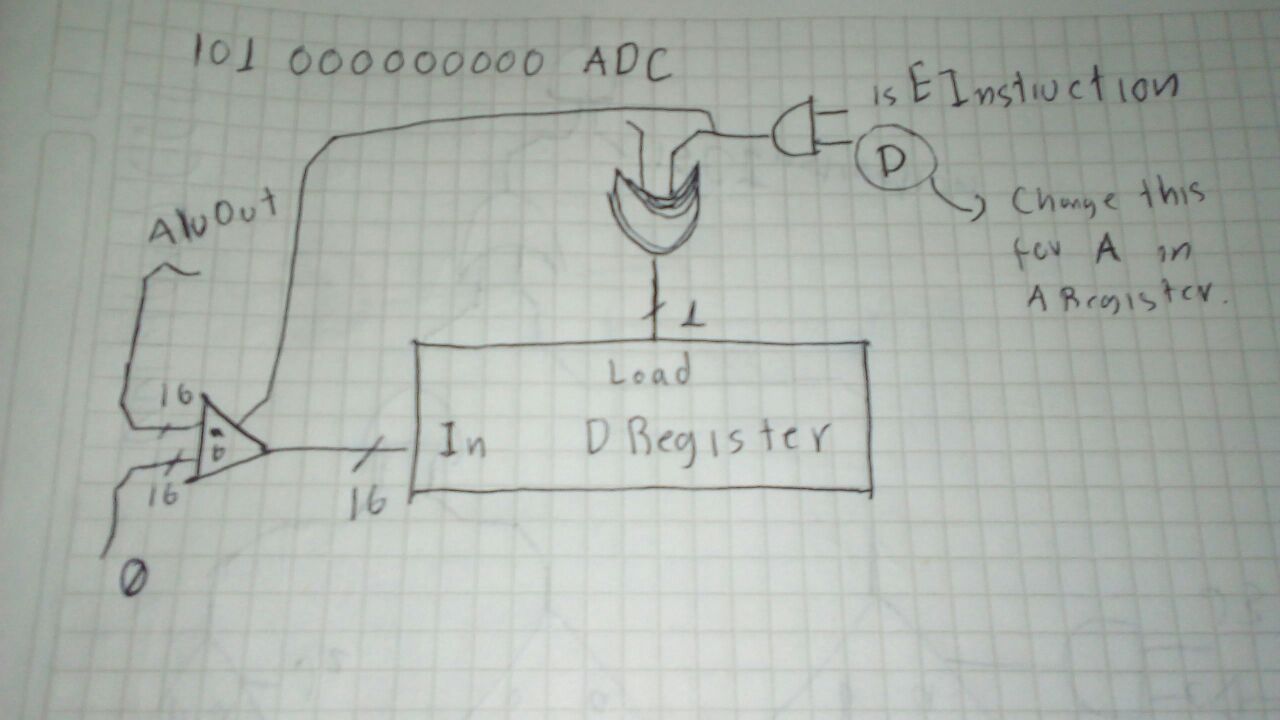 101 000000000 ADC
is E Instruction
D
Change this
for A in
A Register.
AluOut
1
Load
In D Register
16
16
16
0